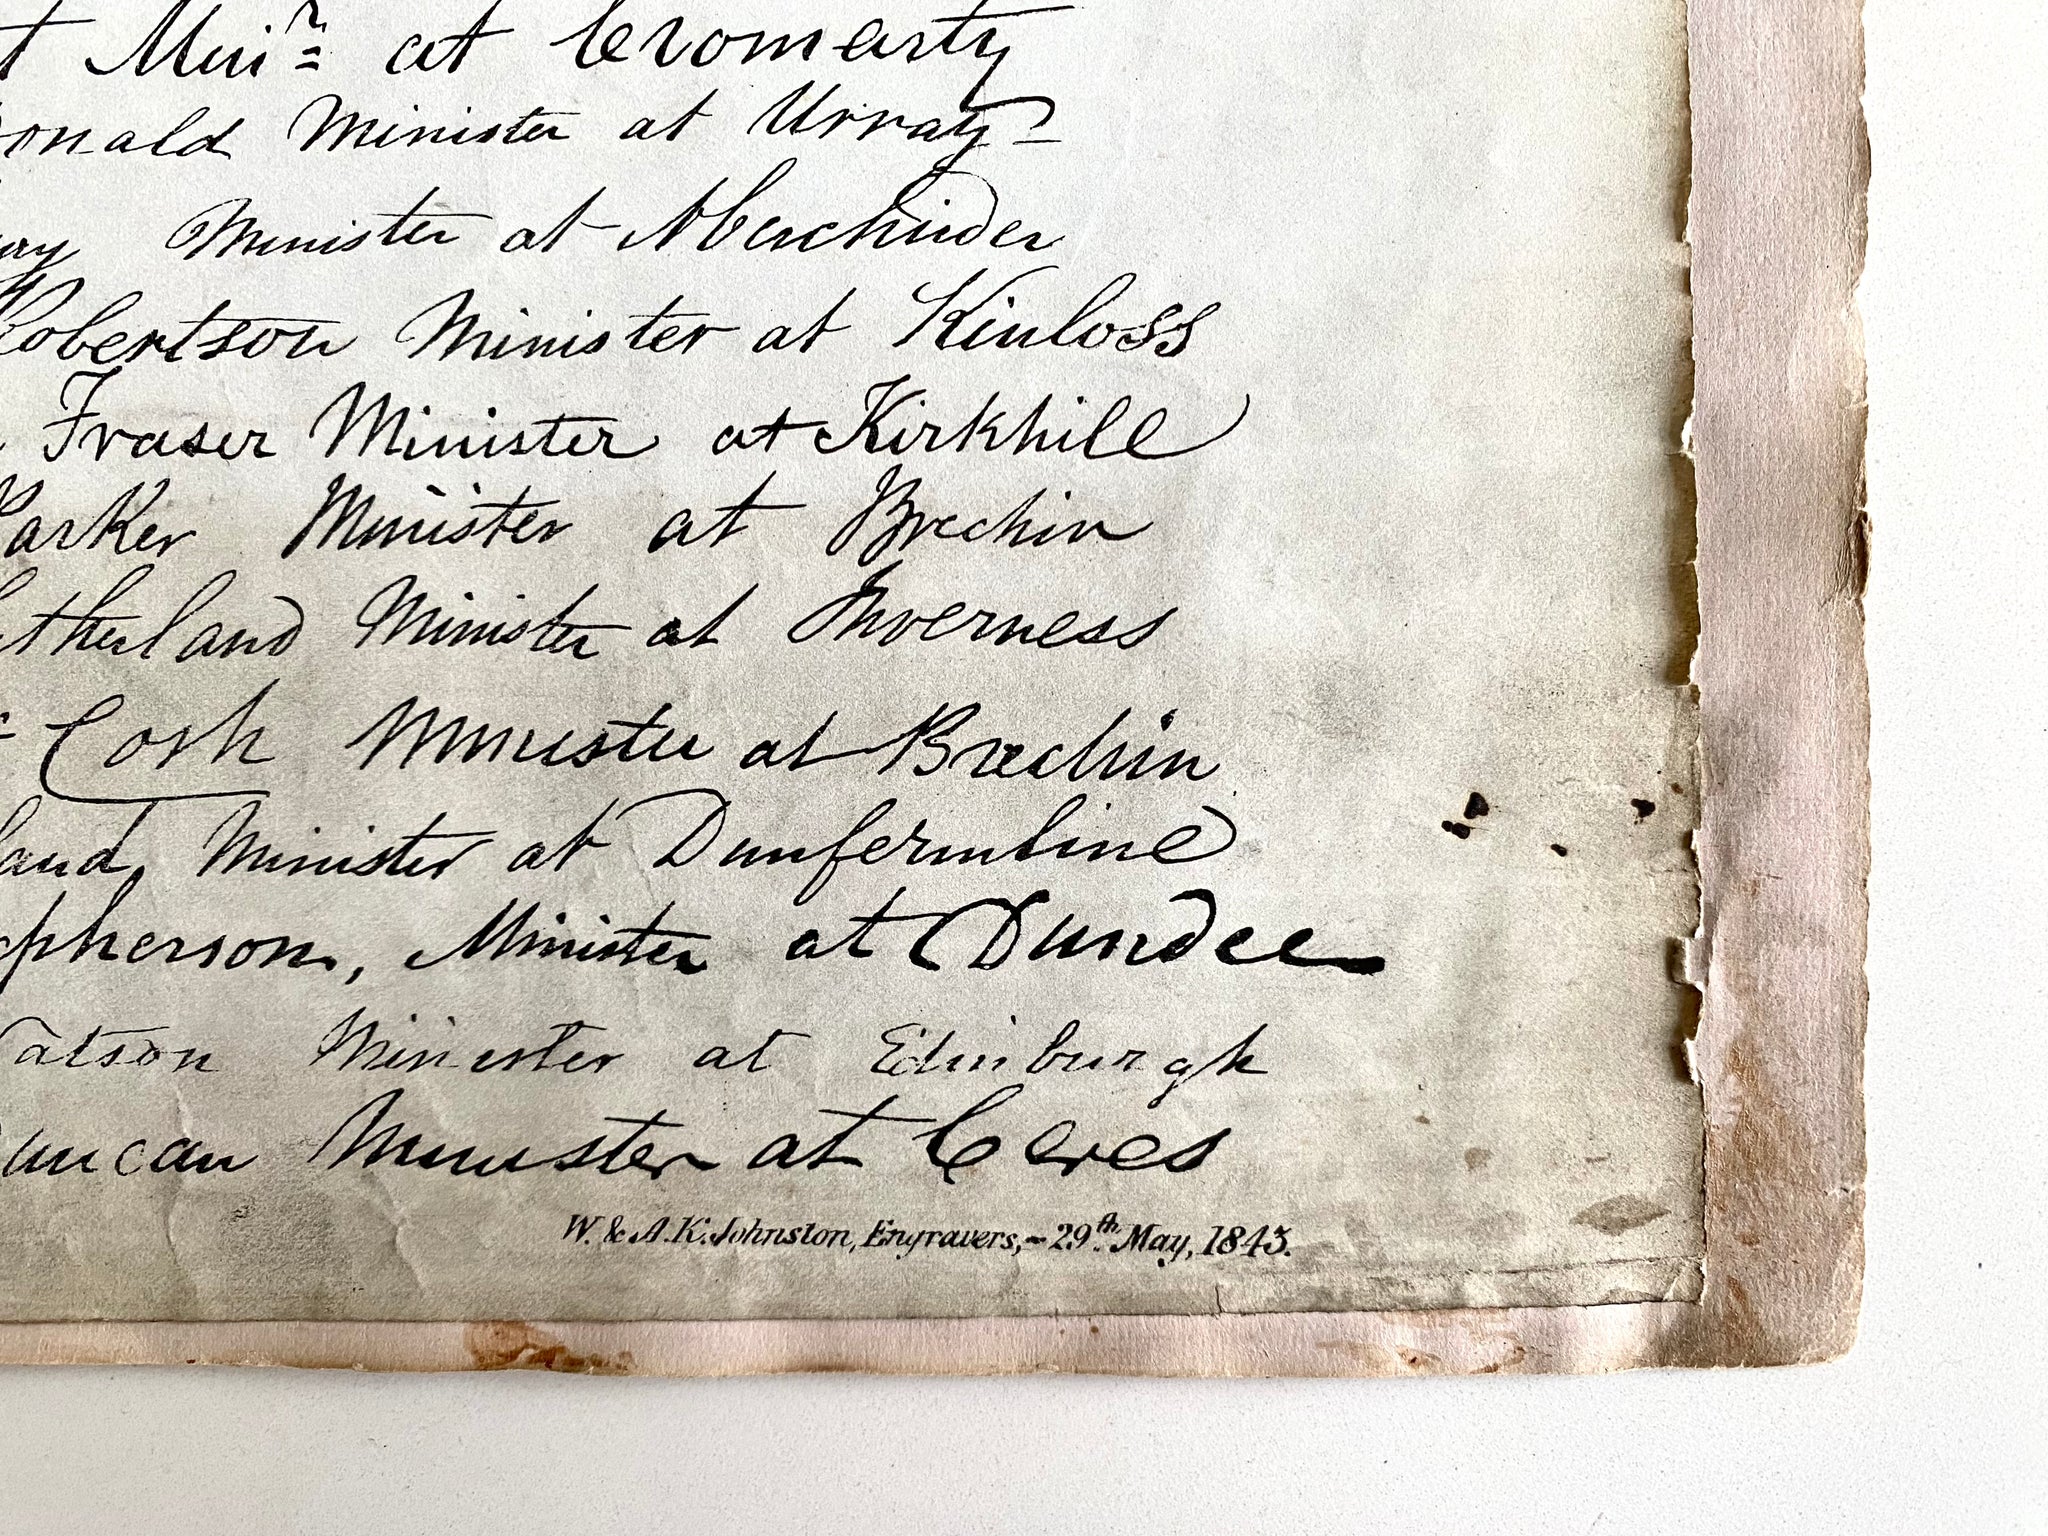 t Minr at Cromarty
onald Minister at Urray
Minister at Aberchirder
Robertson Minister at Kinloss
Fraser Minister at Kirkhill
Parker Minister at Brechin
utherland Minister at Inverness
Cosh Minister at Brechin
land, Minister at Dunfermline
pherson, Minister at Dundee
Watson Minister at Edinburgh
Duncan Minister at Ceres
W. & A.K. Johnston, Engravers,- 29th May, 1843.